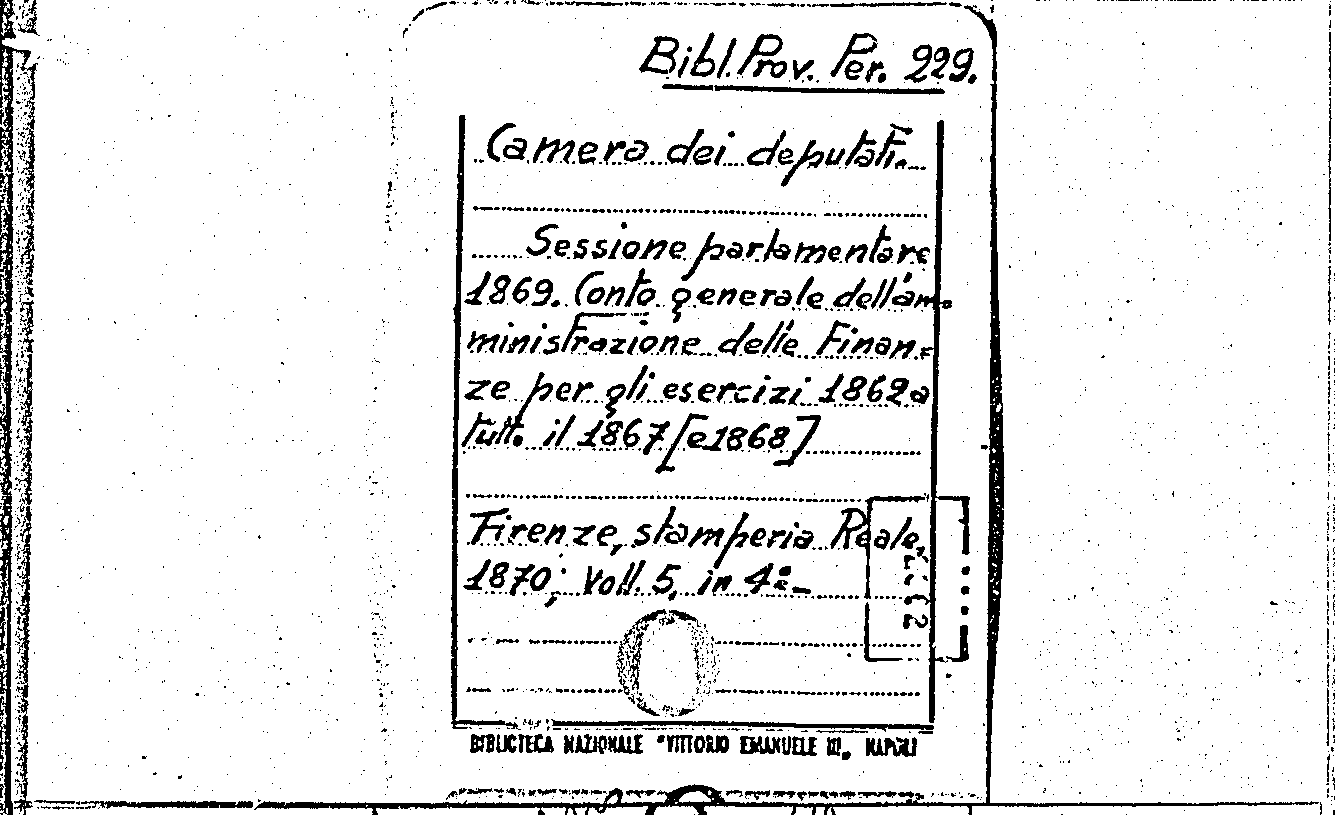 Bibl. Prov. Per. 229.
Camera dei deputati.
Sessione parlamentare
1869. Conto generale dell'am=
ministrazione delle Finan=
ze per gli esercizi 1862 a
tutt. il 1867 [e 1868]
Firenze, stamperia Reale,
1870; Voll. 5, in 4º-
BIBLIOTECA NAZIONALE "VITTORIO EMANUELE III„ NAPOLI